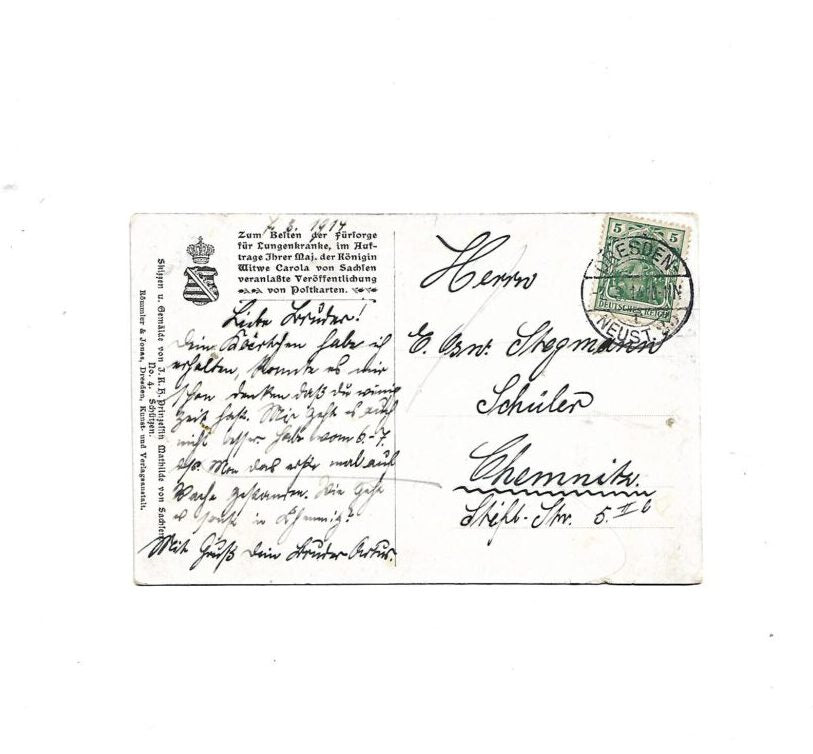 7. 3. 1914
Zum Besten der Fürsorge
für Lungenkranke, im Auf-
trage Ihrer Maj. der Königin
Witwe Carola von Sachsen
veranlaßte Veröffentlichung
von Postkarten.
Liebe Bruder!
Dein Kärtchen habe ich
erhalten, konnte es mir
schon denken daß du wenig
Zeit hast. Mir geht es auch
nicht besser habe vom 6.-7.
das erste mal auf
Wache gestanden. Wie geht
es sonst in Chemnitz?
Mit Gruß Dein Bruder Artur.
Skizzen u. Gemälde von J.K.H. Prinzessin Mathilde von Sachsen
No. 4. Schützen.
Römmler & Jonas, Dresden, Kunst- und Verlagsanstalt.
5 5
DEUTSCHES REICH
DRESDEN-
NEUST.
Herrn
E. Stegmann
Schüler
Chemnitz.
Stiftl.-Str. 5. II